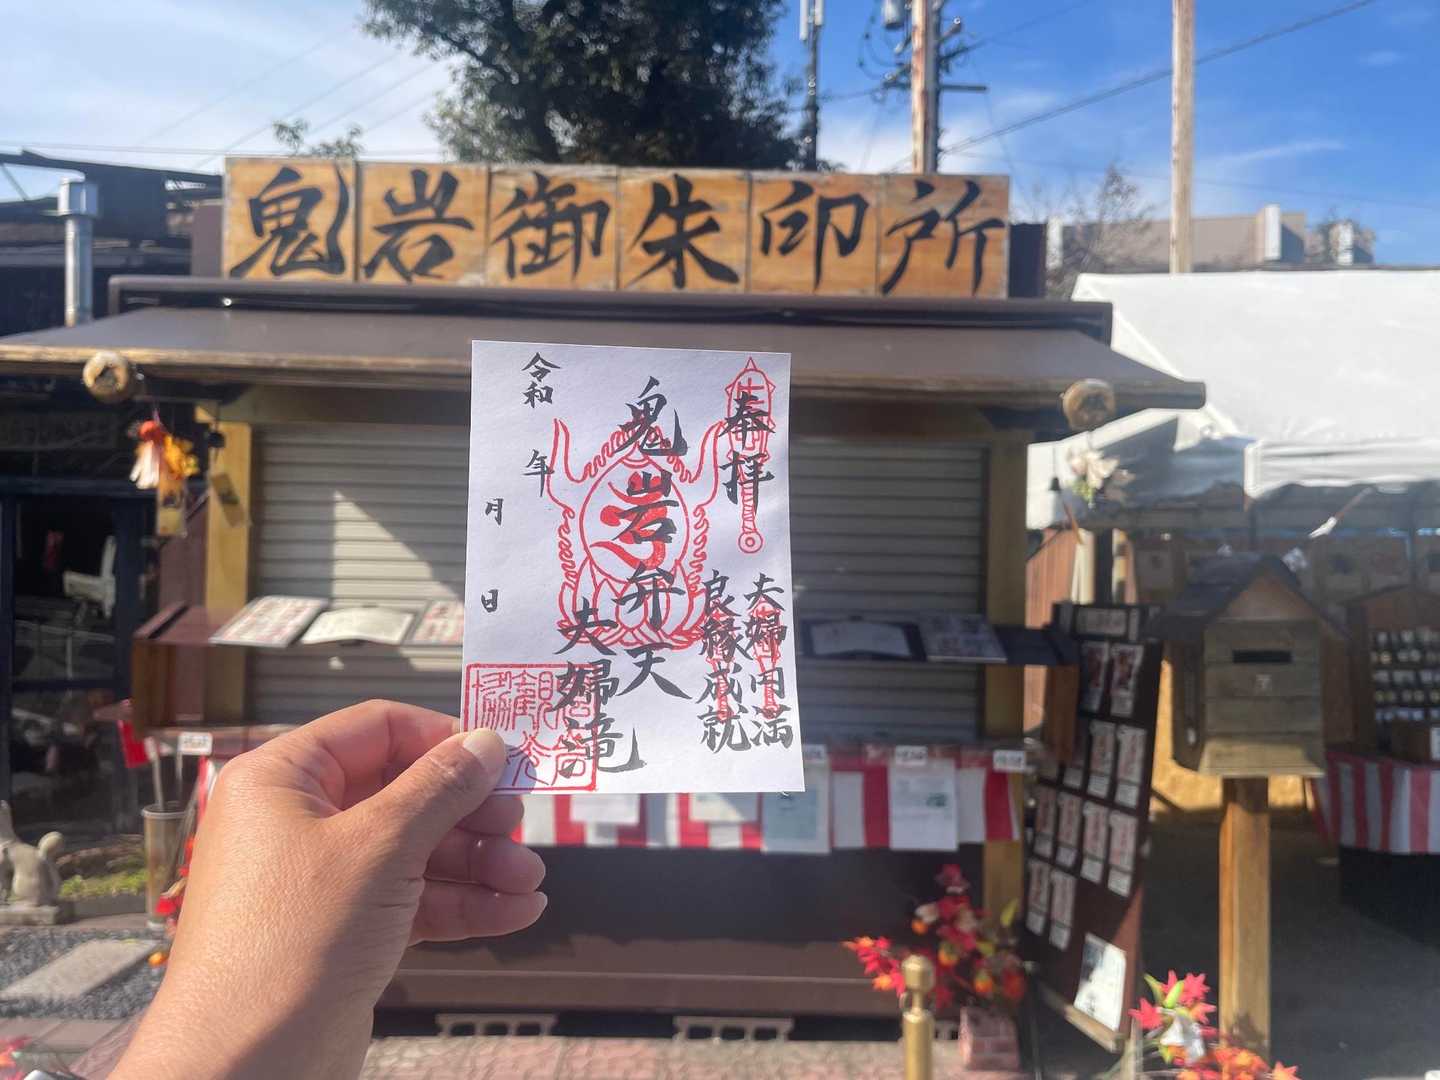 鬼岩御朱印所
奉拝
夫婦円満
良縁成就
鬼岩弁天
夫婦滝
令和 年
月 日